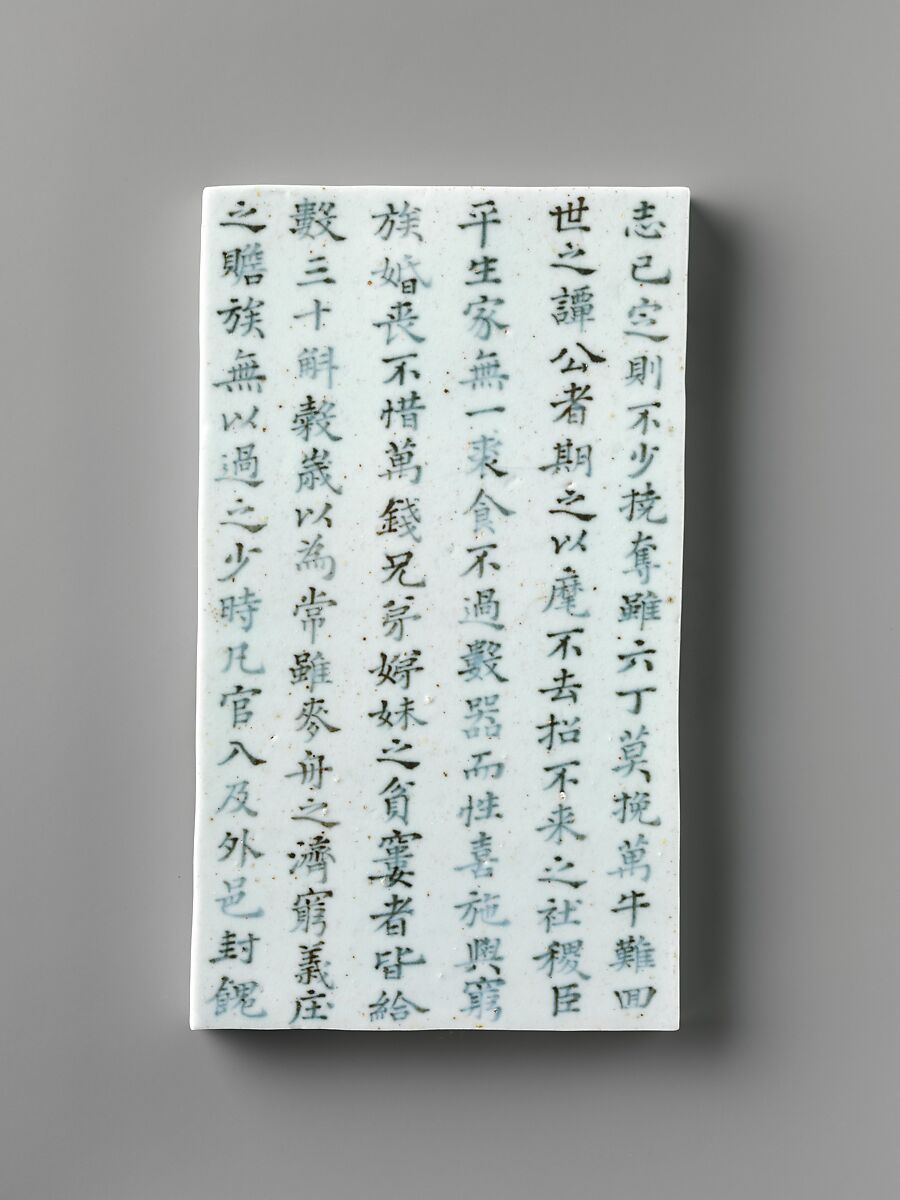 志已定則不少撓奪雖六丁莫挽萬牛難回
世之譚公者期之以麾不去招不来之社稷臣
平生家無一褁食不過數器而性喜施與窮
族婚丧不惜萬錢兄弟姊妹之貧窶者皆給
數三十斛穀歲以為常雖麥舟之濟窮義庄
之贍族無以過之少時凡官入及外邑封餽